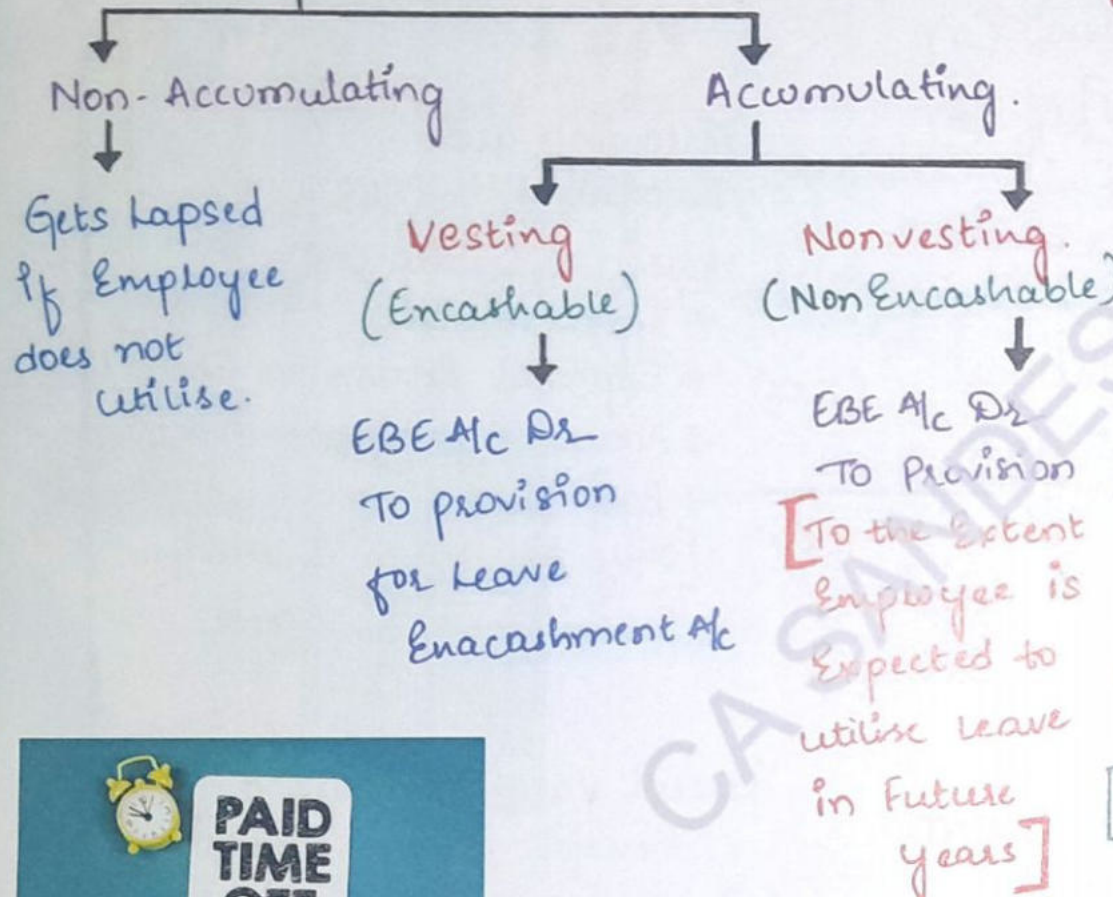 Non-Accumulating
Accumulating.
Gets Lapsed
if Employee
does not
utilise.
Vesting
(Encashable)
EBE A/c Dr
To provision
for Leave
Enacashment A/c
Nonvesting.
(Non Encashable)
EBE A/c Dr
To Provision
[To the Extent
Employee is
Expected to
utilise Leave
in Future
years]
PAID
TIME
OFF
CA SANDES